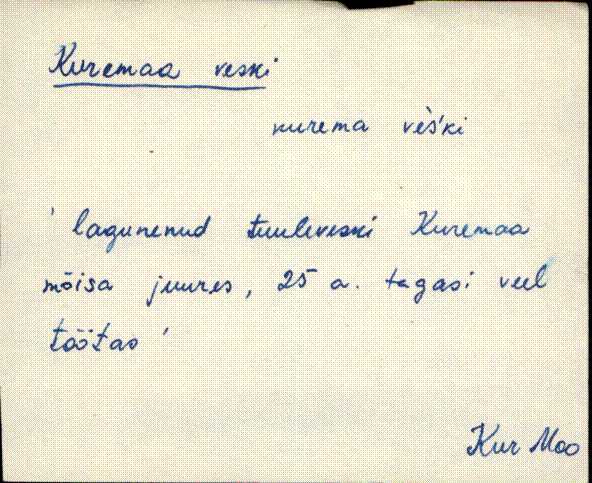 Kuremaa veski
kurema vèš'ki
' lagunenud tuuleveski Kuremaa
mõisa juures, 25 a. tagasi veel
töötas '
Kur Moo